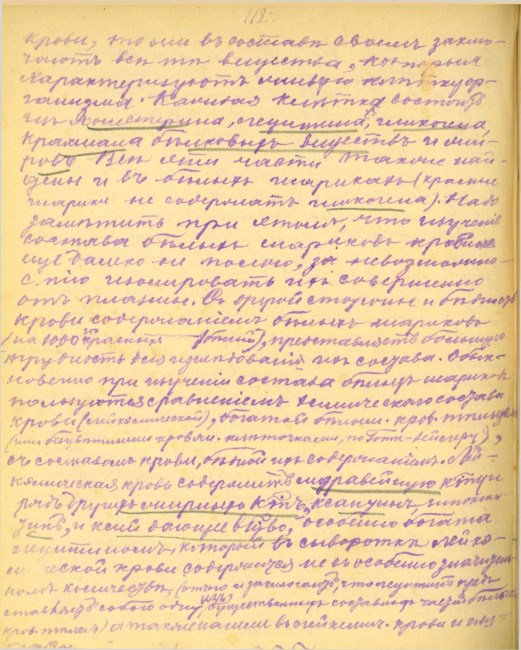 112.
крови, что они въ составѣ своемъ заклю-
чаютъ всѣ тѣ вещества, которыя
характеризуютъ живую клѣтку ор-
ганизма. Каждая клѣтка состоитъ
изъ холестерина, лецитина, гликогена,
крахмала бѣлковыхъ веществъ и жи-
ровъ. Всѣ эти части также най-
дены и въ бѣлыхъ шарикахъ (красные
шарики не содержатъ гликогена). Надо
замѣтить при этомъ, что изученіе
состава бѣлыхъ шариковъ крови
еще далеко не полно, за невозможно-
стію изолировать ихъ совершенно
отъ плазмы. Съ другой стороны и бѣдность
крови содержаніемъ бѣлыхъ шариковъ
(на 1000 красныхъ), представляетъ большую
трудность для изслѣдованія ихъ состава. Обык-
новенно при изученіи состава бѣлыхъ шариковъ
пользуются сравненіемъ химическаго состава
крови (лейкемической), богатой бѣлыми кров. тѣльцами
(или безцвѣтными кровян. клѣточками, по Гоппе-Зейлеру),
съ составомъ крови, бѣдной ихъ содержаніемъ. Лей-
кемическая кровь содержитъ муравьиную к-ту и
рядъ другихъ жирныхъ к-тъ, ксантинъ, гипоксан-
тинъ, и клей дающее в-во, особенно богата
лецитиномъ, который въ сывороткѣ лейке-
мической крови содержится не въ особенно значитель-
номъ количествѣ, (отчего и заключаютъ, что лецитинъ пред-
ставляетъ собою одну изъ существенныхъ составныхъ частей бѣлыхъ
кров. тѣлецъ) а также нашли въ лейкемич. крови и